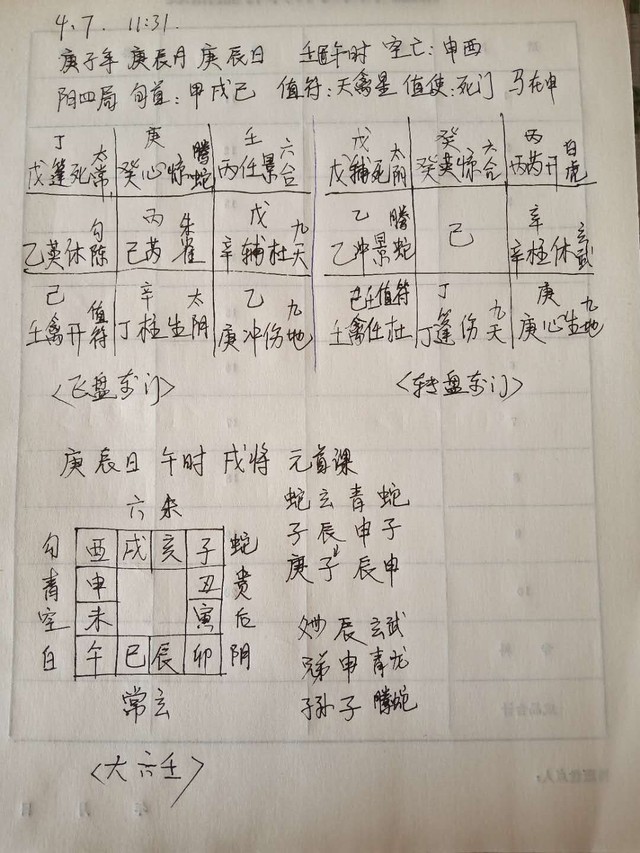 4.7. 11:31.
庚子年 庚辰月 庚辰日 壬午时 空亡:申酉
阳四局 旬首:甲戌己 值符:天禽星 值使:死门 马在申
丁 庚 壬
戊蓬死 太常 癸心惊 腾蛇 丙任景 六合
乙英休 勾陈 丙 己芮 朱雀 戊 辛辅杜 九天
己 辛 乙
壬禽开 值符 丁柱生 太阴 庚冲伤 九地
<飞盘奇门>
戊 癸 丙
戊辅死 太阴 癸英惊 六合 丙芮开 白虎
乙 乙冲景 腾蛇 己 辛 辛柱休 玄武
己壬值符 丁 庚
壬禽任杜 丁蓬伤 九天 庚心生 九地
<转盘奇门>
庚辰日 午时 戌将 元首课
六 朱
勾 酉 戌 亥 子 蛇
青 申 丑 贵
空 未 寅 后
白 午 巳 辰 卯 阴
常 玄
<大六壬>
蛇 玄 青 蛇
子 辰 申 子
庚 子 辰 申
辰 玄武
兄弟 申 青龙
子孙 子 腾蛇